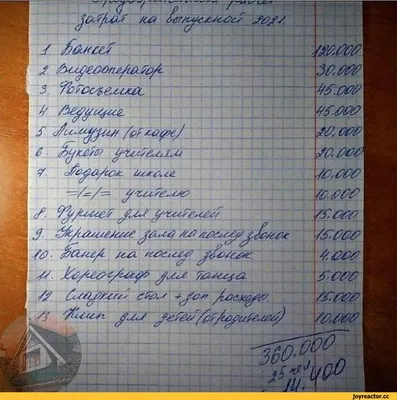 Предварительный расчёт
затрат на выпускной 2021.
1 Банкет 120.000
2. Видеооператор 30.000
3 Фотосъемка 45.000
4 Ведущие 45.000
5. Лимузин (от кафе) 20.000
6. Букеты учителям 20.000
7. Подарок школе 10.000
=/=/= учителю 10.000
8. Фуршет для учителей 15.000
9. Украшение зала на послед звонок 15.000
10. Банер на послед звонок 4.000
11. Хореограф для танца 5.000
12 Сладкий стол + доп расходы. 15.000
13. Клип для детей (от родителей) 10.000
360.000
25 чел
14.400
joyreactor.cc